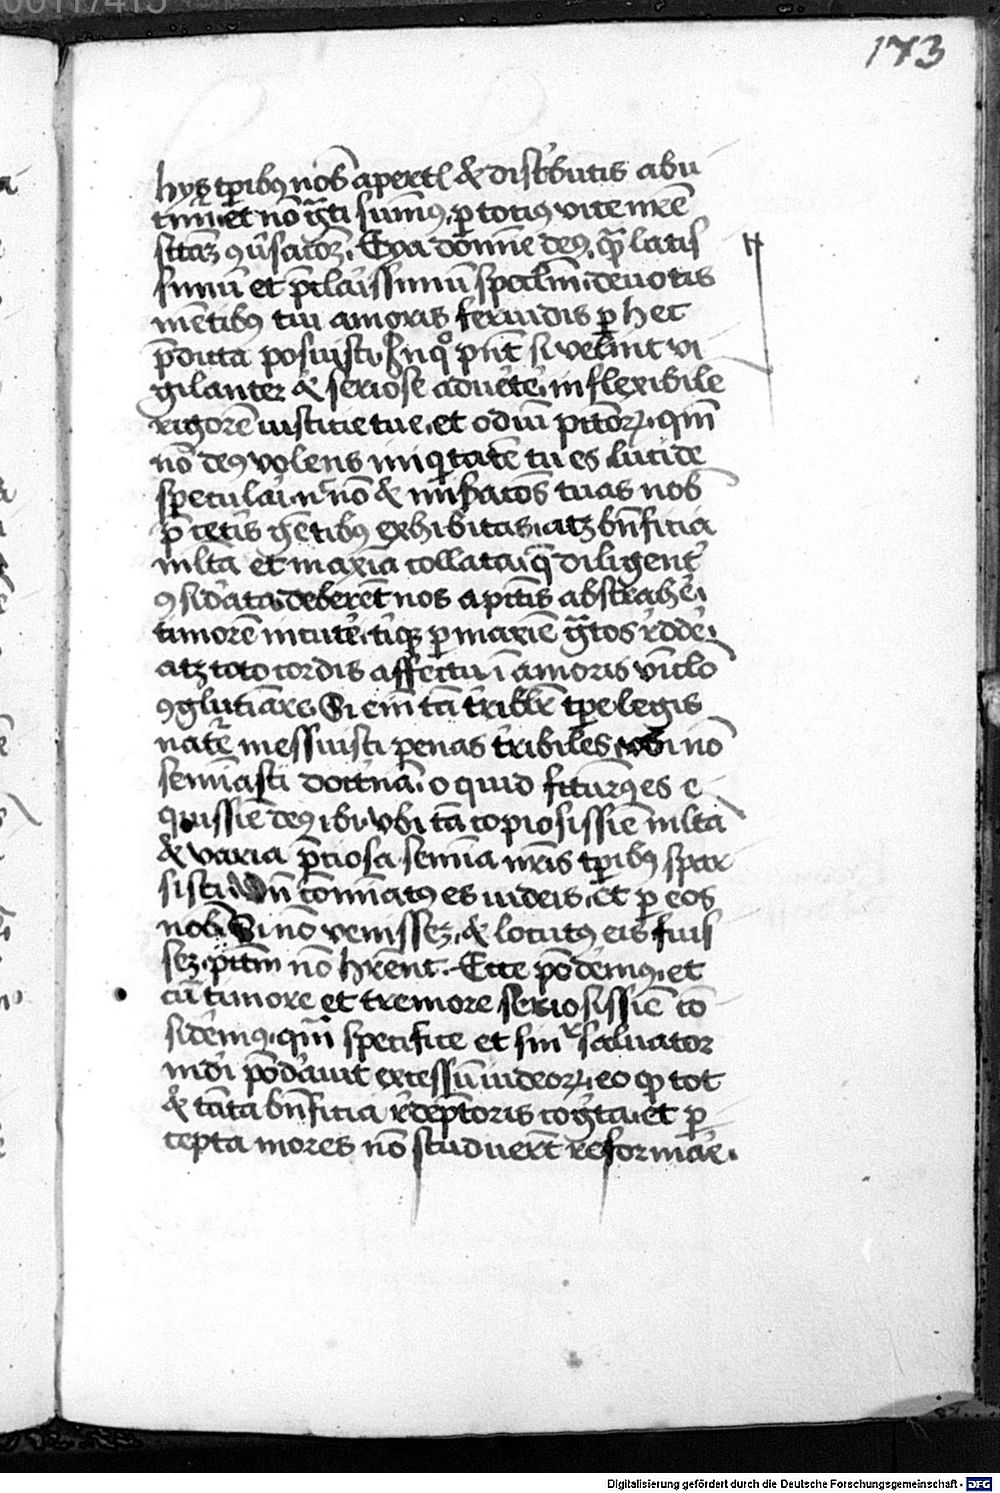 173
hys tp̄ibꝰ nob̄ apert̄ & dist̓butis abu
timur et nō g̃ti sumꝰ, ꝑ totiꝰ vite nr̄e
sitaꝫ ꝯũsatōꝫ. Eya dom̄ine deꝰ, q̃ latis
simū et p̄claissimū spectm̄ deuotis
mētibꝰ tui amoris feruidis ꝑ hec
p̄dicta posuisti, In qͦ pn̄t si velint vi
gilanter & seriose aduẽte, inflexibile
rigorē iusticie tue, et odiū pct̄oꝝ, qm̄
nō deꝰ volens iniqͥtatē tu es. lucide
speculai. nͨnō & mis̄ac̄oēs tuas nob̄
p̄ cet̓is gētibꝰ exhibitas, atqꝫ bn̄ficia
ml̄ta et maxīa collata, q̄ diligent̓
ꝯsid̓ata deberēt nos a pct̄is abstrahẽ,
timorē incutẽ, ꝑ maxīe g̃tos r̓dd̓e,
atqꝫ toto cordis affectu ī amoris vīclo
ꝯglutīare. Si em̄ tā t̓ribl̄r tꝑe legis
nat̾e messuisti penas t̓ribiles, vbi nō
semīasti doct̓nā, o quid fctūrꝰ es e
quissīe deꝰ ibi, vbi tā copiosissīe ml̄ta
& varia p̄ciosa semīa nr̄is tp̄ibꝰ spar
sisti com̄inatꝰ es iudeis, et ꝑ eos
nob̄ Si nō venissꝫ, & locutꝰ eis fuis
sꝫ, pct̄m nō hr̄ent. Ecce pōdemꝰ, et
cū timore et tremore seriosissīe cō
sid̓emꝰ, qm̄ specifice et sin̾ saluator
mdī pōd̓auit excessū iudeoꝝ, eo ꝙ tot
& tāta bn̄ficia r̓dēptoris cog̓ta, et ꝑ
cepta mores nō studuer̄t reformar̓.
Digitalisierung gefördert durch die Deutsche Forschungsgemeinschaft - DFG